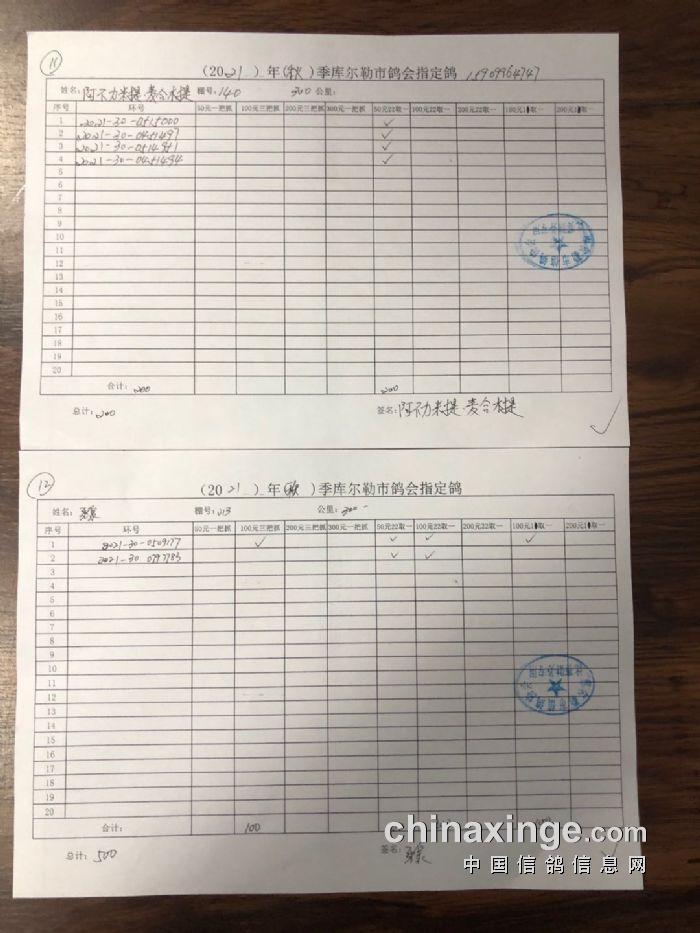 11
(2021)年(秋)季库尔勒市鸽会指定鸽
姓名: 阿不力米提·麦合木提 棚号: 140 300公里:
序号 环号 50元一把抓 100元三把抓 200元三把抓 300元一把抓 50元22取一 100元22取一 200元22取一 100元1 取一 200元1 取一
1 2021-30-0515000 ✓
2 2021-30-0451497 ✓
3 2021-30-0514951 ✓
4 2021-30-0451494 ✓
5
6
7
8
9
10
11
12
13
14
15
16
17
18
19
20
合计: 200 200
总计: 200 签名: 阿不力米提·麦合木提
12
(2021)年(秋)季库尔勒市鸽会指定鸽
姓名: 棚号: 213 公里: 300
序号 环号 50元一把抓 100元三把抓 200元三把抓 300元一把抓 50元22取一 100元22取一 200元22取一 100元1 取一 200元1 取一
1 2021-30-0509177 ✓ ✓ ✓ ✓
2 2021-30 0797783 ✓ ✓
3
4
5
6
7
8
9
10
11
12
13
14
15
16
17
18
19
20
合计: 100
总计: 500 签名:
chinaxinge.com
中国信鸽信息网